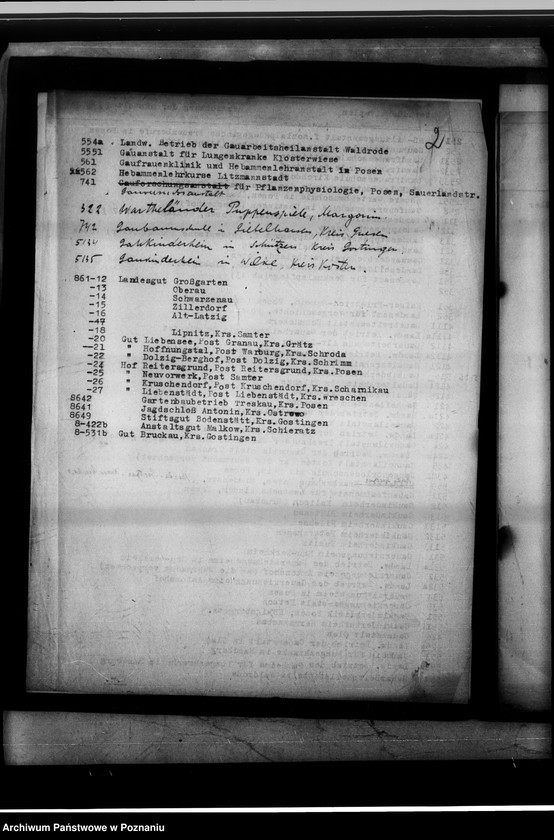 2
554a Landw. Betrieb der Gauarbeitsheilanstalt Waldrode
5551 Gauanstalt für Lungenkranke Klosterwiese
561 Gaufrauenklinik und Hebammenlehranstalt in Posen
562 Hebammenlehrkurse Litzmannstadt
741 Gauforschungsanstalt für Pflanzenphysiologie, Posen, Sauerlandstr.
322 Wartheländer Puppenspiele, Margonin
742 Gaubaumschule in Kreis Gnesen
5134 Gaukinderheim in Schützen Kreis Gostingen
5135 Gaukinderheim in Kreis Kosten
861-12 Landesgut Großgarten
-13 Oberau
-14 Schwarzenau
-15 Zillerdorf
-16 Alt-Latzig
-17
-18 Lipnitz,Krs.Samter
-20 Gut Liebensee,Post Granau,Krs.Grätz
-21 " Hoffnungstal,Post Warburg,Krs.Schroda
-22 " Dolzig-Berghof,Post Dolzig,Krs.Schrimm
-24 Hof Reitersgrund,Post Reitersgrund,Krs.Posen
-25 " Neuvorwerk,Post Samter
-26 " Kruschendorf,Post Kruschendorf,Krs.Scharnikau
-27 " Liebenstädt,Post Liebenstädt,Krs.Wreschen
8642 Gartenbaubetrieb Treskau,Krs.Posen
8641 Jagdschloß Antonin,Krs.Ostrowo
8649 Stiftsgut Bodenstätt,Krs.Gostingen
8-422b Anstaltsgut Malkow,Krs.Schieratz
8-531b Gut Bruckau,Krs.Gostingen
Archiwum Państwowe w Poznaniu